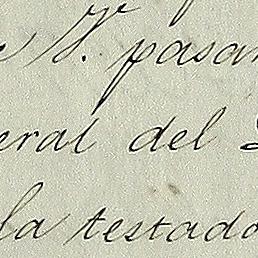 V. pasar
eral del
la testado